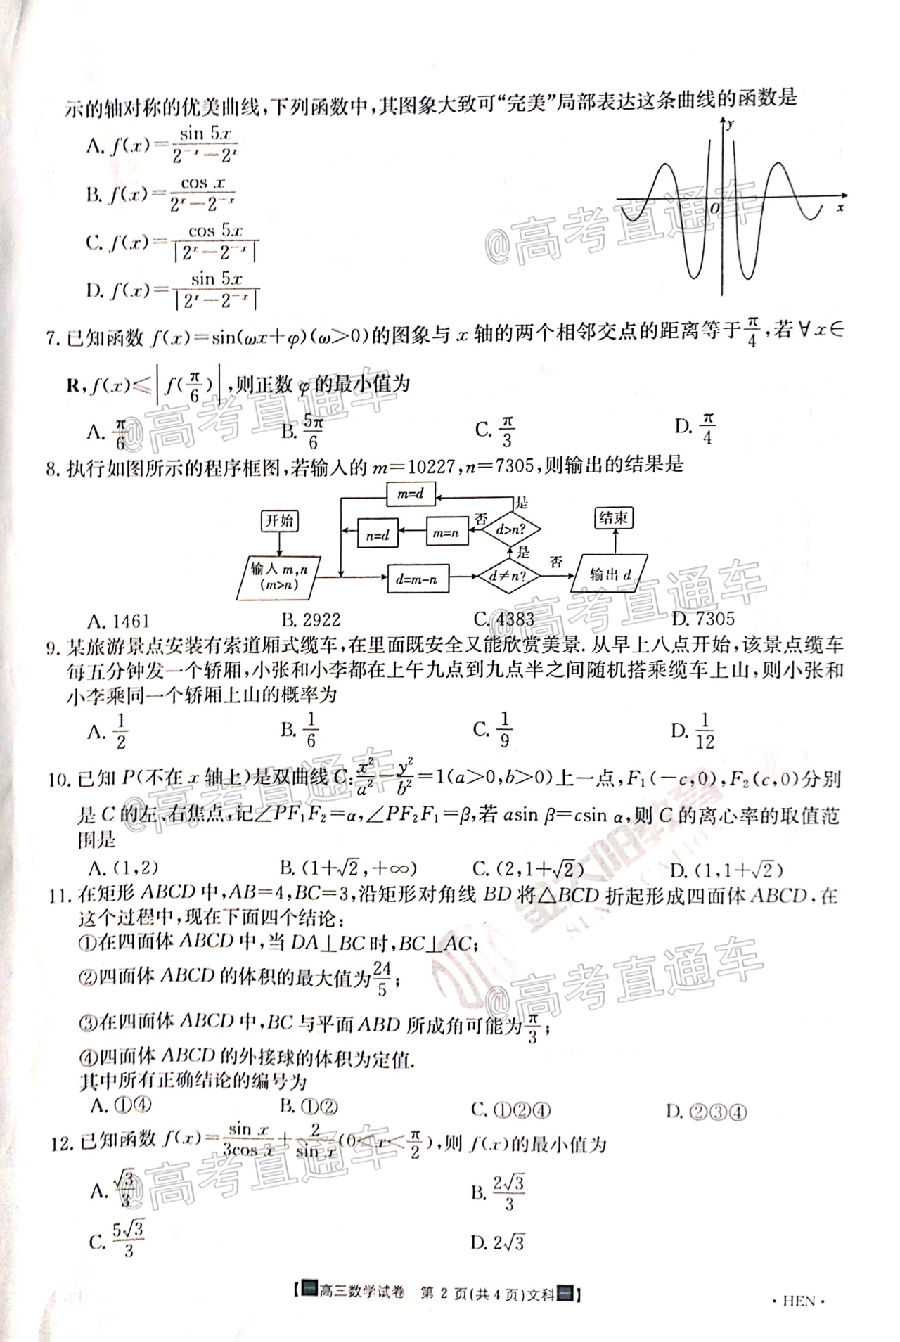 示的轴对称的优美曲线,下列函数中,其图象大致可“完美”局部表达这条曲线的函数是
A. f(x)=sin 5x/(2^{-x}-2^{x})
B. f(x)=cos x/(2^{x}-2^{-x})
C. f(x)=cos 5x/|2^{x}-2^{-x}|
D. f(x)=sin 5x/|2^{x}-2^{-x}|
y
O
x
7. 已知函数 f(x)=sin(ωx+φ)(ω>0)的图象与 x 轴的两个相邻交点的距离等于π/4,若 ∀x∈
R,f(x)≤|f(π/6)|,则正数 φ 的最小值为
A. π/6 B. 5π/6 C. π/3 D. π/4
8. 执行如图所示的程序框图,若输入的 m=10227,n=7305,则输出的结果是
开始
输入 m,n
(m>n)
m=d
n=d
m=n
否
d>n?
是
d=m-n
d≠n?
是
否
输出 d
结束
A. 1461 B. 2922 C. 4383 D. 7305
9. 某旅游景点安装有索道厢式缆车,在里面既安全又能欣赏美景. 从早上八点开始,该景点缆车
每五分钟发一个轿厢,小张和小李都在上午九点到九点半之间随机搭乘缆车上山,则小张和
小李乘同一个轿厢上山的概率为
A. 1/2 B. 1/6 C. 1/9 D. 1/12
10. 已知 P(不在 x 轴上)是双曲线 C:x²/a²-y²/b²=1(a>0,b>0)上一点,F₁(-c,0),F₂(c,0)分别
是 C 的左、右焦点,记∠PF₁F₂=α,∠PF₂F₁=β,若 asin β=csin α,则 C 的离心率的取值范
围是
A. (1,2) B. (1+√2,+∞) C. (2,1+√2) D. (1,1+√2)
11. 在矩形 ABCD 中,AB=4,BC=3,沿矩形对角线 BD 将△BCD 折起形成四面体 ABCD,在
这个过程中,现在下面四个结论:
①在四面体 ABCD 中,当 DA⊥BC 时,BC⊥AC;
②四面体 ABCD 的体积的最大值为24/5;
③在四面体 ABCD 中,BC 与平面 ABD 所成角可能为π/3;
④四面体 ABCD 的外接球的体积为定值.
其中所有正确结论的编号为
A. ①④ B. ①② C. ①②④ D. ②③④
12. 已知函数 f(x)=sin x/3cos x+2/sin x(0<x<π/2),则 f(x)的最小值为
A. √3/3 B. 2√3/3
C. 5√3/3 D. 2√3
@高考直通车
@高考直通车
@高考直通车
@高考直通车
@高考直通车
【高三数学试卷 第 2 页(共 4 页)文科】
·HEN·